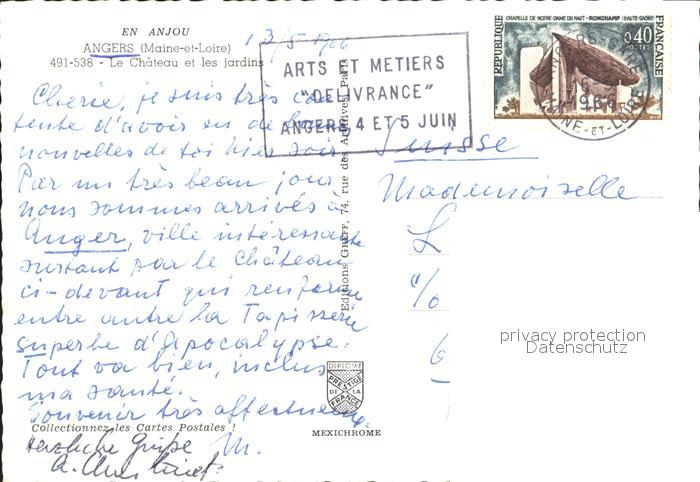 EN ANJOU
ANGERS (Maine-et-Loire)
491-538 - Le Château et les jardins
13/5 1966
ARTS ET METIERS
"DELIVRANCE"
ANGERS 4 ET 5 JUIN
RÉPUBLIQUE FRANÇAISE
CHAPELLE DE NOTRE-DAME DU HAUT - RONCHAMP (HAUTE-SAÔNE)
0,40
POSTES
1966
MAINE-ET-LOIRE
Chérie, je suis très con
tente d'avoir eu de bonnes
nouvelles de toi hier soir.
Par un très beau jour
nous sommes arrivés à
Anger, ville intéressante
surtout par le Château
ci-devant qui renferme
entre autre la Tapisserie
superbe d'Apocalypse.
Tout va bien, inclus
ma santé.
Souvenir très affectueux
M.
Herzliche Grüsse
A.
Suisse
Mademoiselle
L
c/o
6
Editions Greff, 74, rue des Archives, Paris
privacy protection
Datenschutz
DIPLOME
PRESTIGE
DE LA
FRANCE
MEXICHROME
Collectionnez les Cartes Postales !